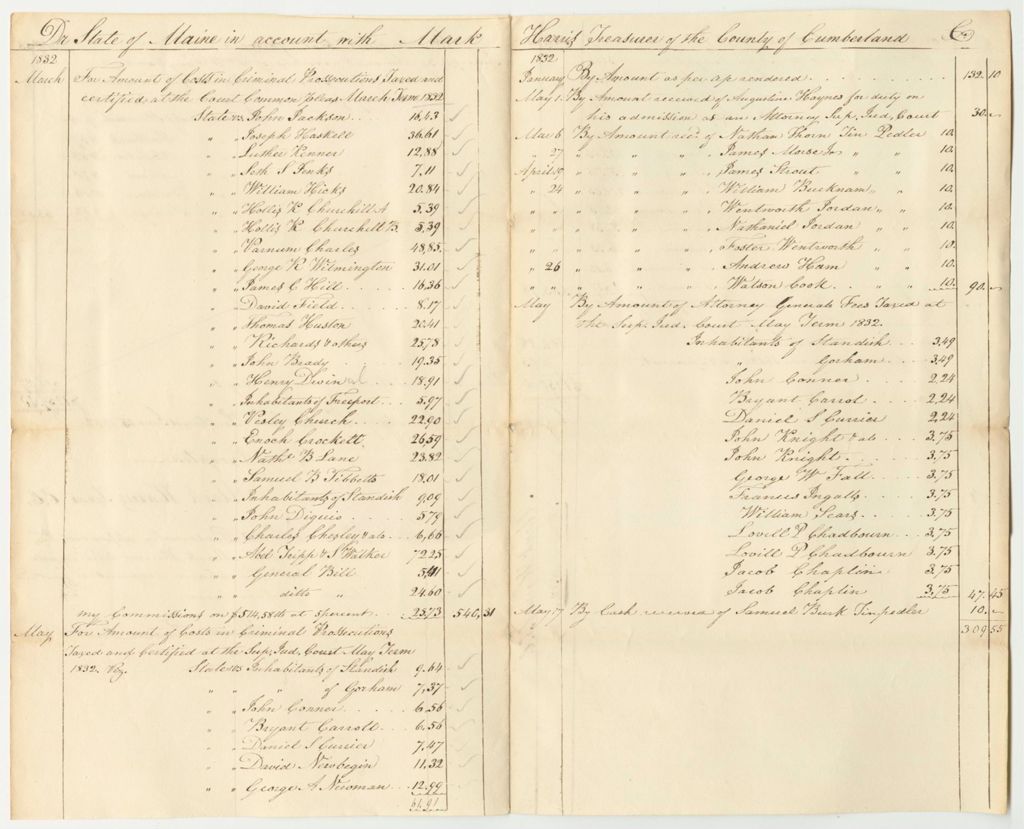 Dr State of Maine in account with Mark
1832
March For Amount of Costs in Criminal Prosecutions Taxed and
certified at the Court Common Pleas March Term 1832
State vs John Jackson 16.43
" " Joseph Haskell 36.61
" " Luther Fenner 12.88
" " Seth S Jenks 7.11
" " William Hicks 20.84
" " Hollis K Churchill A 5.39
" " Hollis K Churchill B. 5.39
" " Varnum Charles 48.85
" " George K Wilmington 31.01
" " James C Hill 16.36
" " David Field 8.17
" " Thomas Huston 20.41
" " Richards & others 25.78
" " John Brady 19.35
" " Henry Dwin 18.91
" " Inhabitants of Freeport 5.97
" " Vesley Church 22.90
" " Enoch Crockett 26.59
" " Nathl B Lane 23.82
" " Samuel B Tibbetts 18.01
" " Inhabitants of Standish 9.09
" " John Diguio 5.79
" " Charles Chesley & als 6.66
" " Abel Tripp & S Walker 72.25
" " General Bill 5.41
" " ditto " 24.60
my Commissions on $514.58th at 5 percent 25.73 540.31
May For Amount of Costs in Criminal Prosecutions
Taxed and Certified at the Sup. Jud. Court May Term
1832. Viz. State vs Inhabitants of Standish 9.64
" " " of Gorham 7.37
" " John Conner 6.56
" " Bryant Carroll 6.56
" " Daniel S Currier 7.47
" " David Newbegin 11.32
" " George A Newman 12.99
61.91
Harris Treasurer of the County of Cumberland Cr
1832
January By Amount as per a/c rendered 132. 10
May 1. By Amount received of Augustine Haynes for duty on
his admission as an Attorney Sup. Jud. Court 30. "
Mar 6 By Amount recd. of Nathan Thorn Tin Pedler 10.
" 27 " " " James Morse Jr " " 10.
April 19 " " " James Strout " " 10.
" 24 " " " William Bucknam " " 10.
" " " " " Wentworth Jordan " " 10.
" " " " " Nathaniel Jordan " " 10.
" " " " " Foster Wentworth " " 10.
" 26 " " " Andrew Ham " " 10.
" " " " " Watson Cook " " 10. 90. "
May By Amount of Attorney Generals Fees Taxed at
the Sup. Jud. Court May Term 1832.
Inhabitants of Standish 3.49
" Gorham 3.49
John Conner 2.24
Bryant Carrol 2.24
Daniel S Currier 2.24
John Knight & als 3.75
John Knight 3.75
George W Fall 3.75
Francis Ingalls 3.75
William Sears 3.75
Lovill P Chadbourn 3.75
Lovill P Chadbourn 3.75
Jacob Chaplin 3.75
Jacob Chaplin 3.75 47.45
May 17 By Cash received of Samuel Burk Tin pedler 10. "
309 55